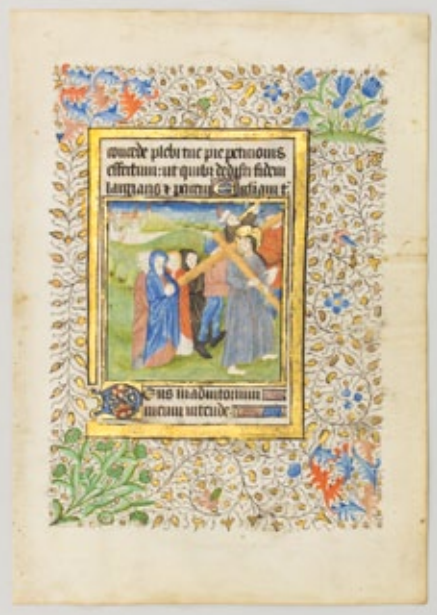 concede plebi tue pie peticionis
effectum: ut quibus dedisti fidem
largiaris et
Deus in adiutorium
meum intende